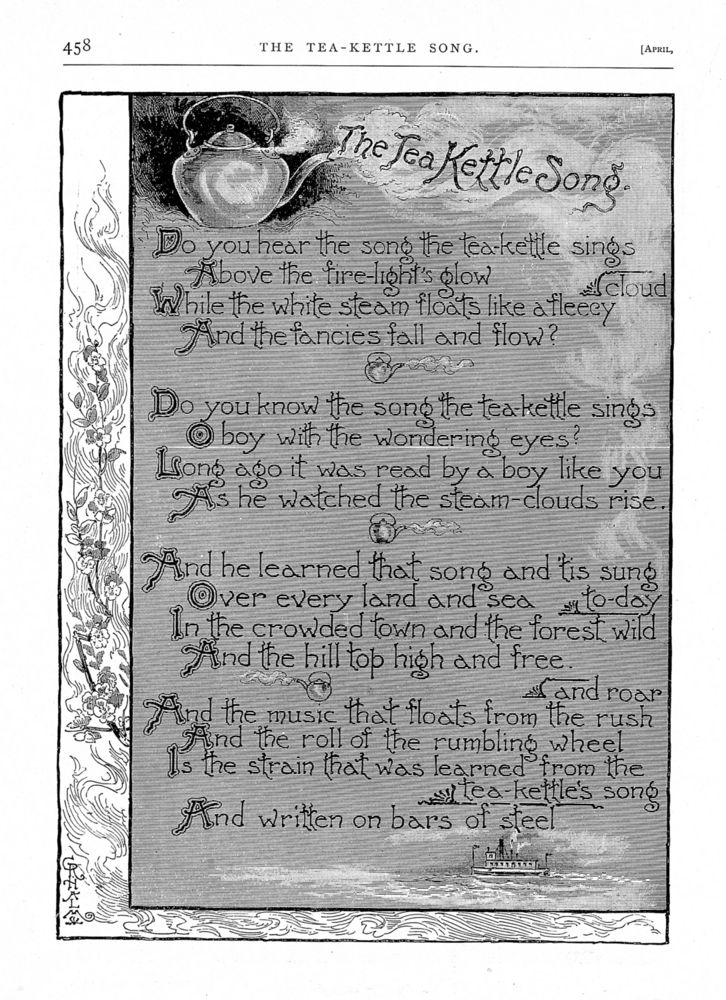 458
THE TEA-KETTLE SONG.
[APRIL,
The Tea Kettle Song.
Do you hear the song the tea-kettle sings
Above the fire-light's glow
While the white steam floats like a fleecy
cloud
And the fancies fall and flow?
Do you know the song the tea-kettle sings
O boy with the wondering eyes?
Long ago it was read by a boy like you
As he watched the steam-clouds rise.
And he learned that song and 'tis sung
to-day
Over every land and sea
In the crowded town and the forest wild
And the hill top high and free.
And the music that floats from the rush
and roar
And the roll of the rumbling wheel
Is the strain that was learned from the
tea-kettle's song
And written on bars of steel